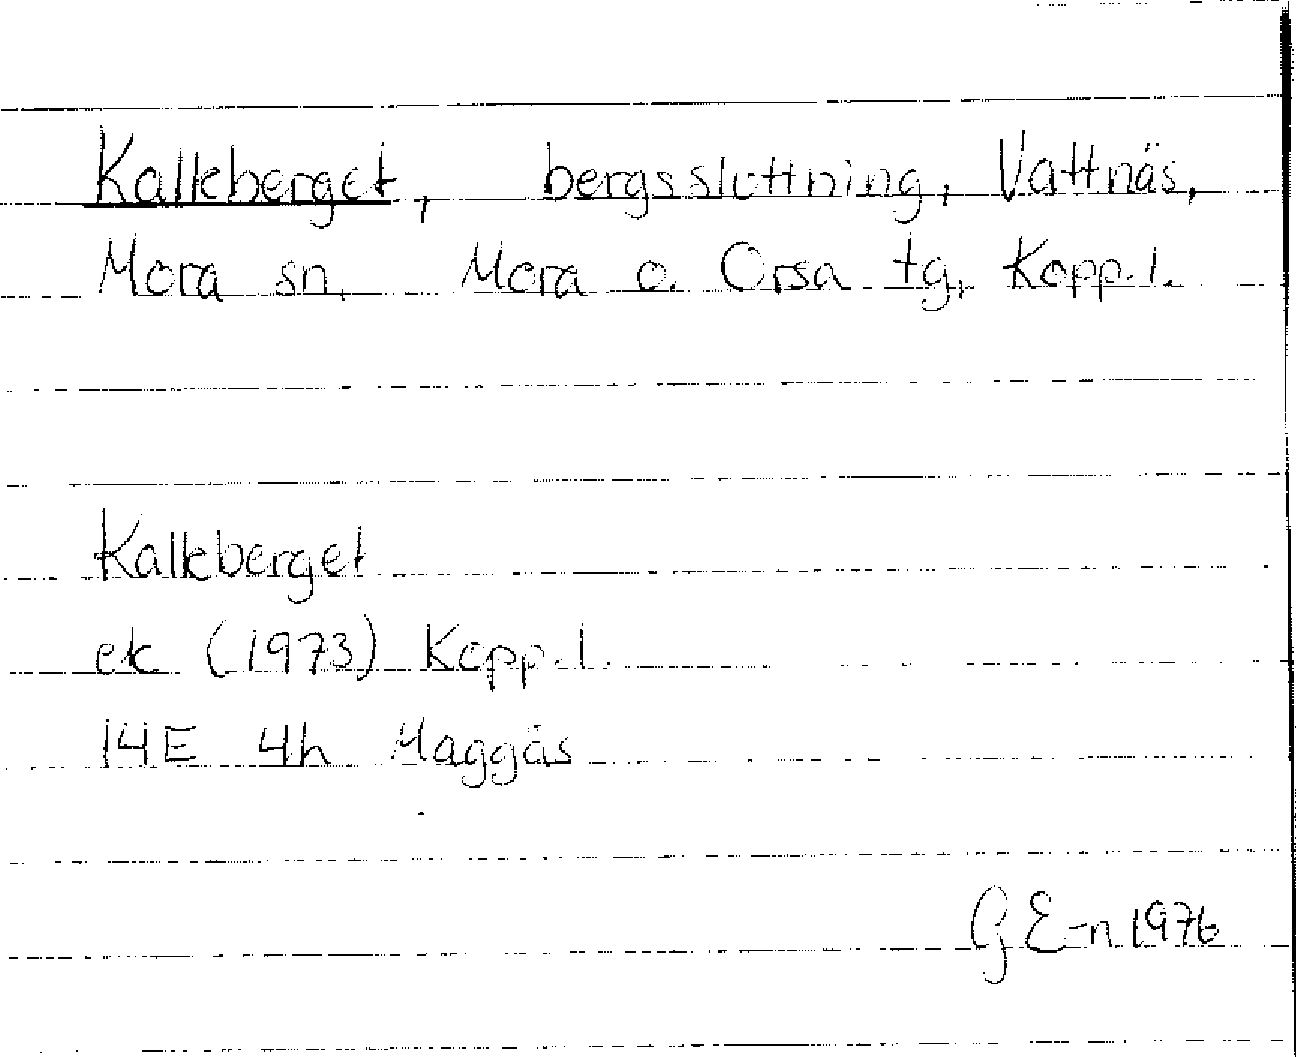 Kalkberget, bergssluttning, Vattnäs,
Mora sn. Mora o. Orsa tg, Kopp.l.
Kalkberget
ek (1973) Kopp.l.
14E 4h Maggås
G E-n 1976